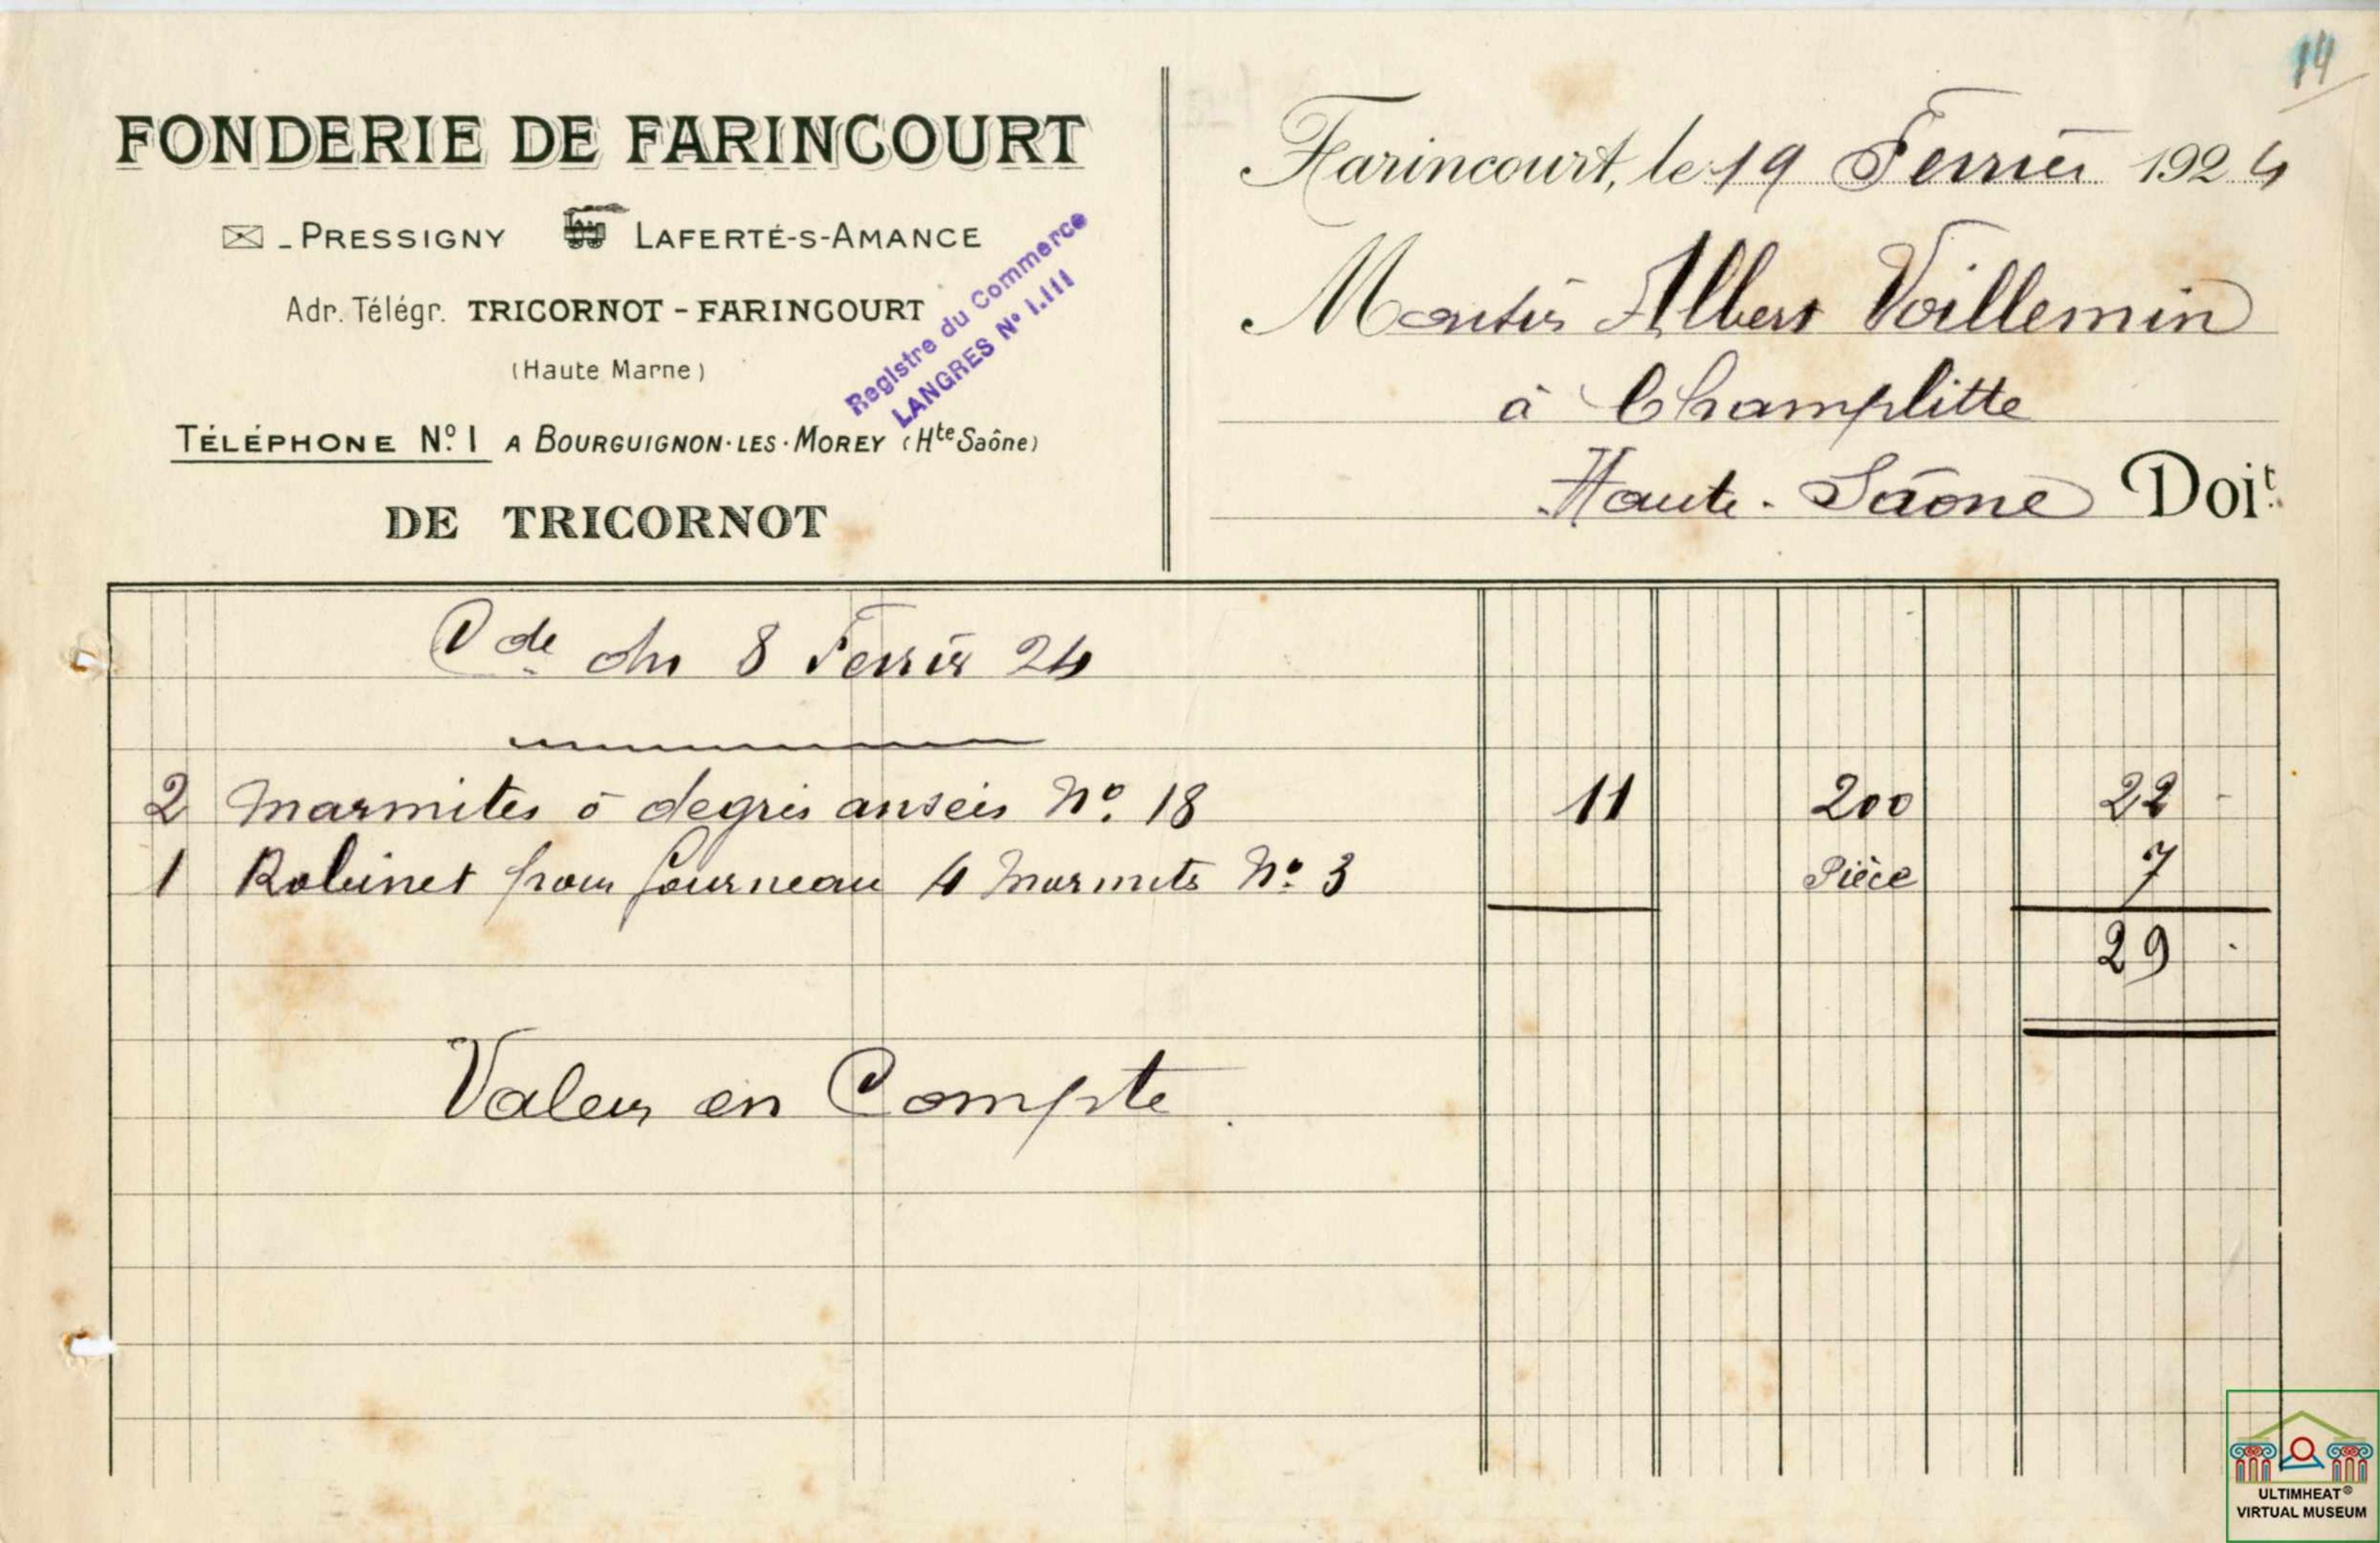 14
FONDERIE DE FARINCOURT
- PRESSIGNY LAFERTÉ-S-AMANCE
Adr. Télégr. TRICORNOT - FARINCOURT
(Haute Marne)
Registre du Commerce
LANGRES N° 1.111
TÉLÉPHONE N° 1 A BOURGUIGNON-LES-MOREY (Hte Saône)
DE TRICORNOT
Farincourt, le 19 Février 1924
Monsieur Albert Voillemin
à Champlitte
Haute-Saône Doit
Cde du 8 Février 24
2 Marmites à degrés ansées N° 18 11 200 22 -
1 Robinet pour fourneau 4 Marmites N° 3 Pièce 7
29 -
Valeur en Compte
ULTIMHEAT®
VIRTUAL MUSEUM